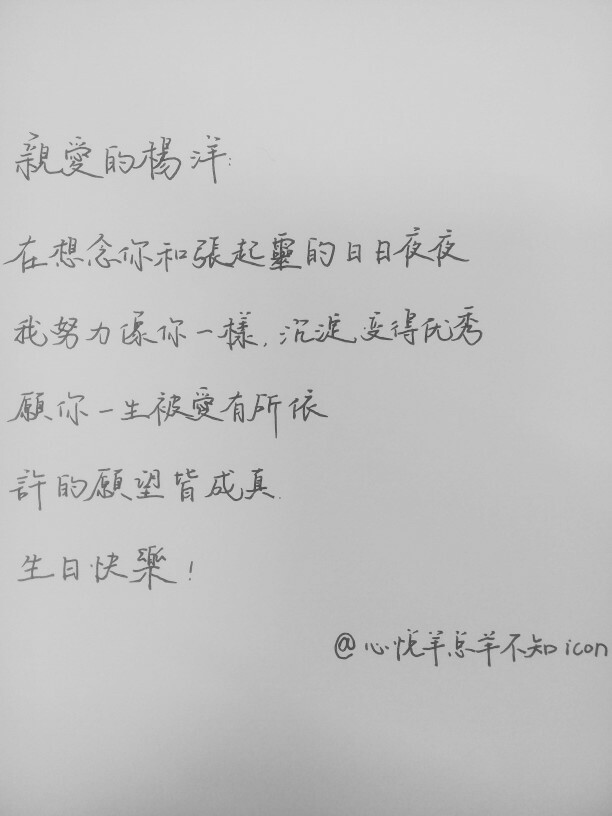 親愛的楊洋:
在想念你和張起靈的日日夜夜
我努力像你一樣,沉淀变得优秀
願你一生被愛有所依
許的願望皆成真.
生日快樂!
@心悅羊羊不知icon